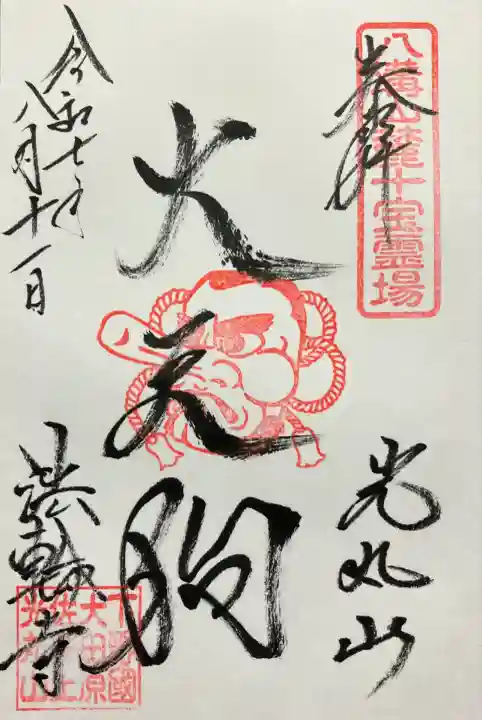 八溝山麓十宝霊場
奉拝
光丸山
大天狗
令和七年
八月十一日
法輪寺
下野國
大田原
佐良土
光丸山